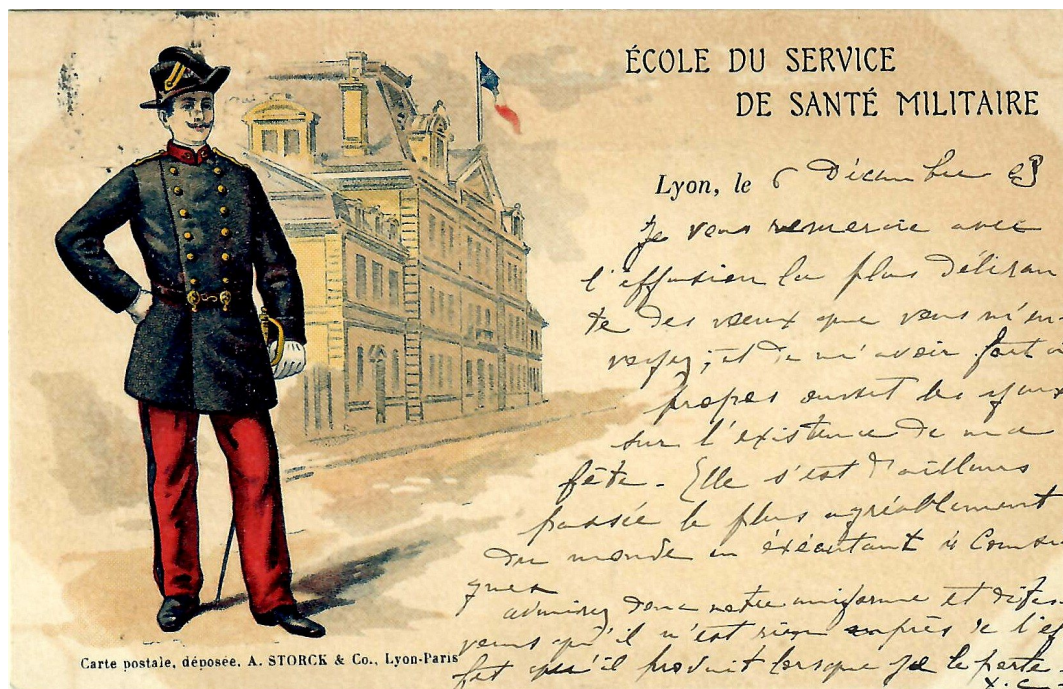 ÉCOLE DU SERVICE
DE SANTÉ MILITAIRE
Lyon, le 6 Décembre
Je vous remercie avec
l'effusion la plus déliran
te des vœux que vous m'en-
voyez, et de m'avoir fort à
propos ouvert les yeux
sur l'existence de ma
fête - Elle s'est d'ailleurs
passée le plus agréablement
du monde en exécutant
admirez donc notre uniforme et dites-
vous qu'il n'est rien auprès de l'ef
fet qu'il produit lorsque je le porte.
Carte postale, déposée. A. STORCK & Co., Lyon-Paris